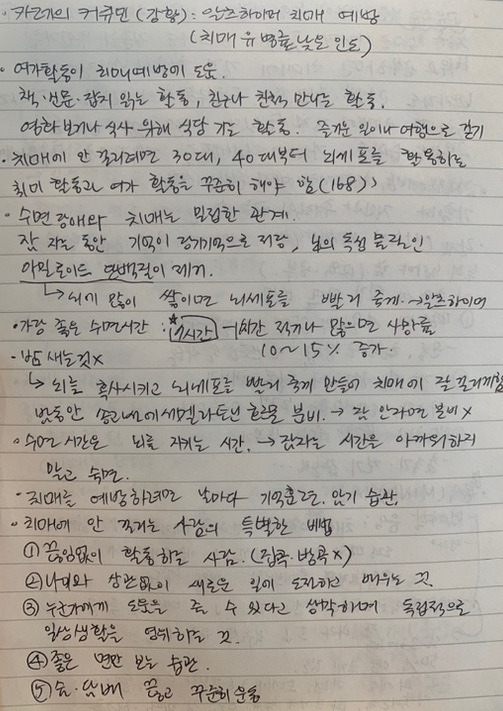 · 카레의 커큐민 (강황) : 알츠하이머 치매 예방
(치매 유병률 낮은 인도)
· 여가활동이 치매예방에 도움.
책·신문·잡지 읽는 활동, 친구나 친척 만나는 활동.
영화보기나 식사 위해 식당 가는 활동. 즐거운 일이나 여행으로 걷기
· 치매에 안 걸리려면 30대, 40대부터 뇌세포를 활용하는
취미 활동과 여가 활동을 꾸준히 해야 함 (168)
· 수면 장애와 치매는 밀접한 관계.
잠 자는 동안 기억이 장기기억으로 저장, 뇌의 독성 물질인
아밀로이드 단백질이 제거.
↳ 뇌에 많이 쌓이면 뇌세포를 빨리 죽게 → 알츠하이머
· 가장 좋은 수면시간 : ★7시간 - 1시간 적거나 많으면 사망률
10~15% 증가.
· 밤 새는것 X
↳ 뇌를 혹사시키고 뇌세포를 빨리 죽게 만들어 치매에 잘 걸리게함
밤동안 송과선에서 멜라토닌 호르몬 분비. → 잠 안자면 분비 X
· 수면 시간은 뇌를 지키는 시간. → 잠자는 시간을 아까워하지
말고 숙면.
· 치매를 예방하려면 날마다 기억훈련. 암기 습관.
· 치매에 안 걸리는 사람의 특별한 비법
① 끊임없이 활동하는 사람. (집콕·방콕 X)
② 나이와 상관없이 새로운 일에 도전하고 배우는 것.
③ 누군가에게 도움을 줄 수 있다고 생각하며 독립적으로
일상생활을 영위하는 것.
④ 좋은 면만 보는 습관.
⑤ 술·담배 끊고 꾸준히 운동